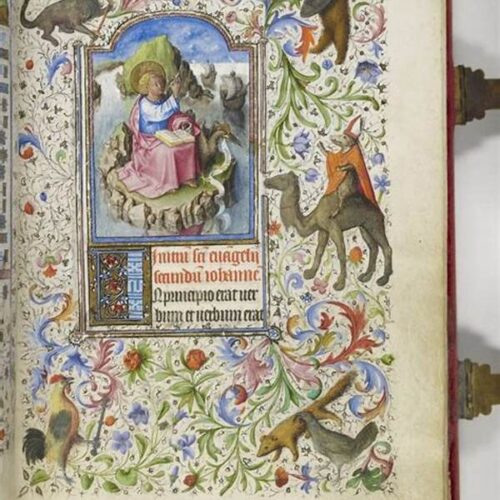 Initiū sci euāgelij
secundū iohanne
IN principio erat uer
bum et uerbum erat